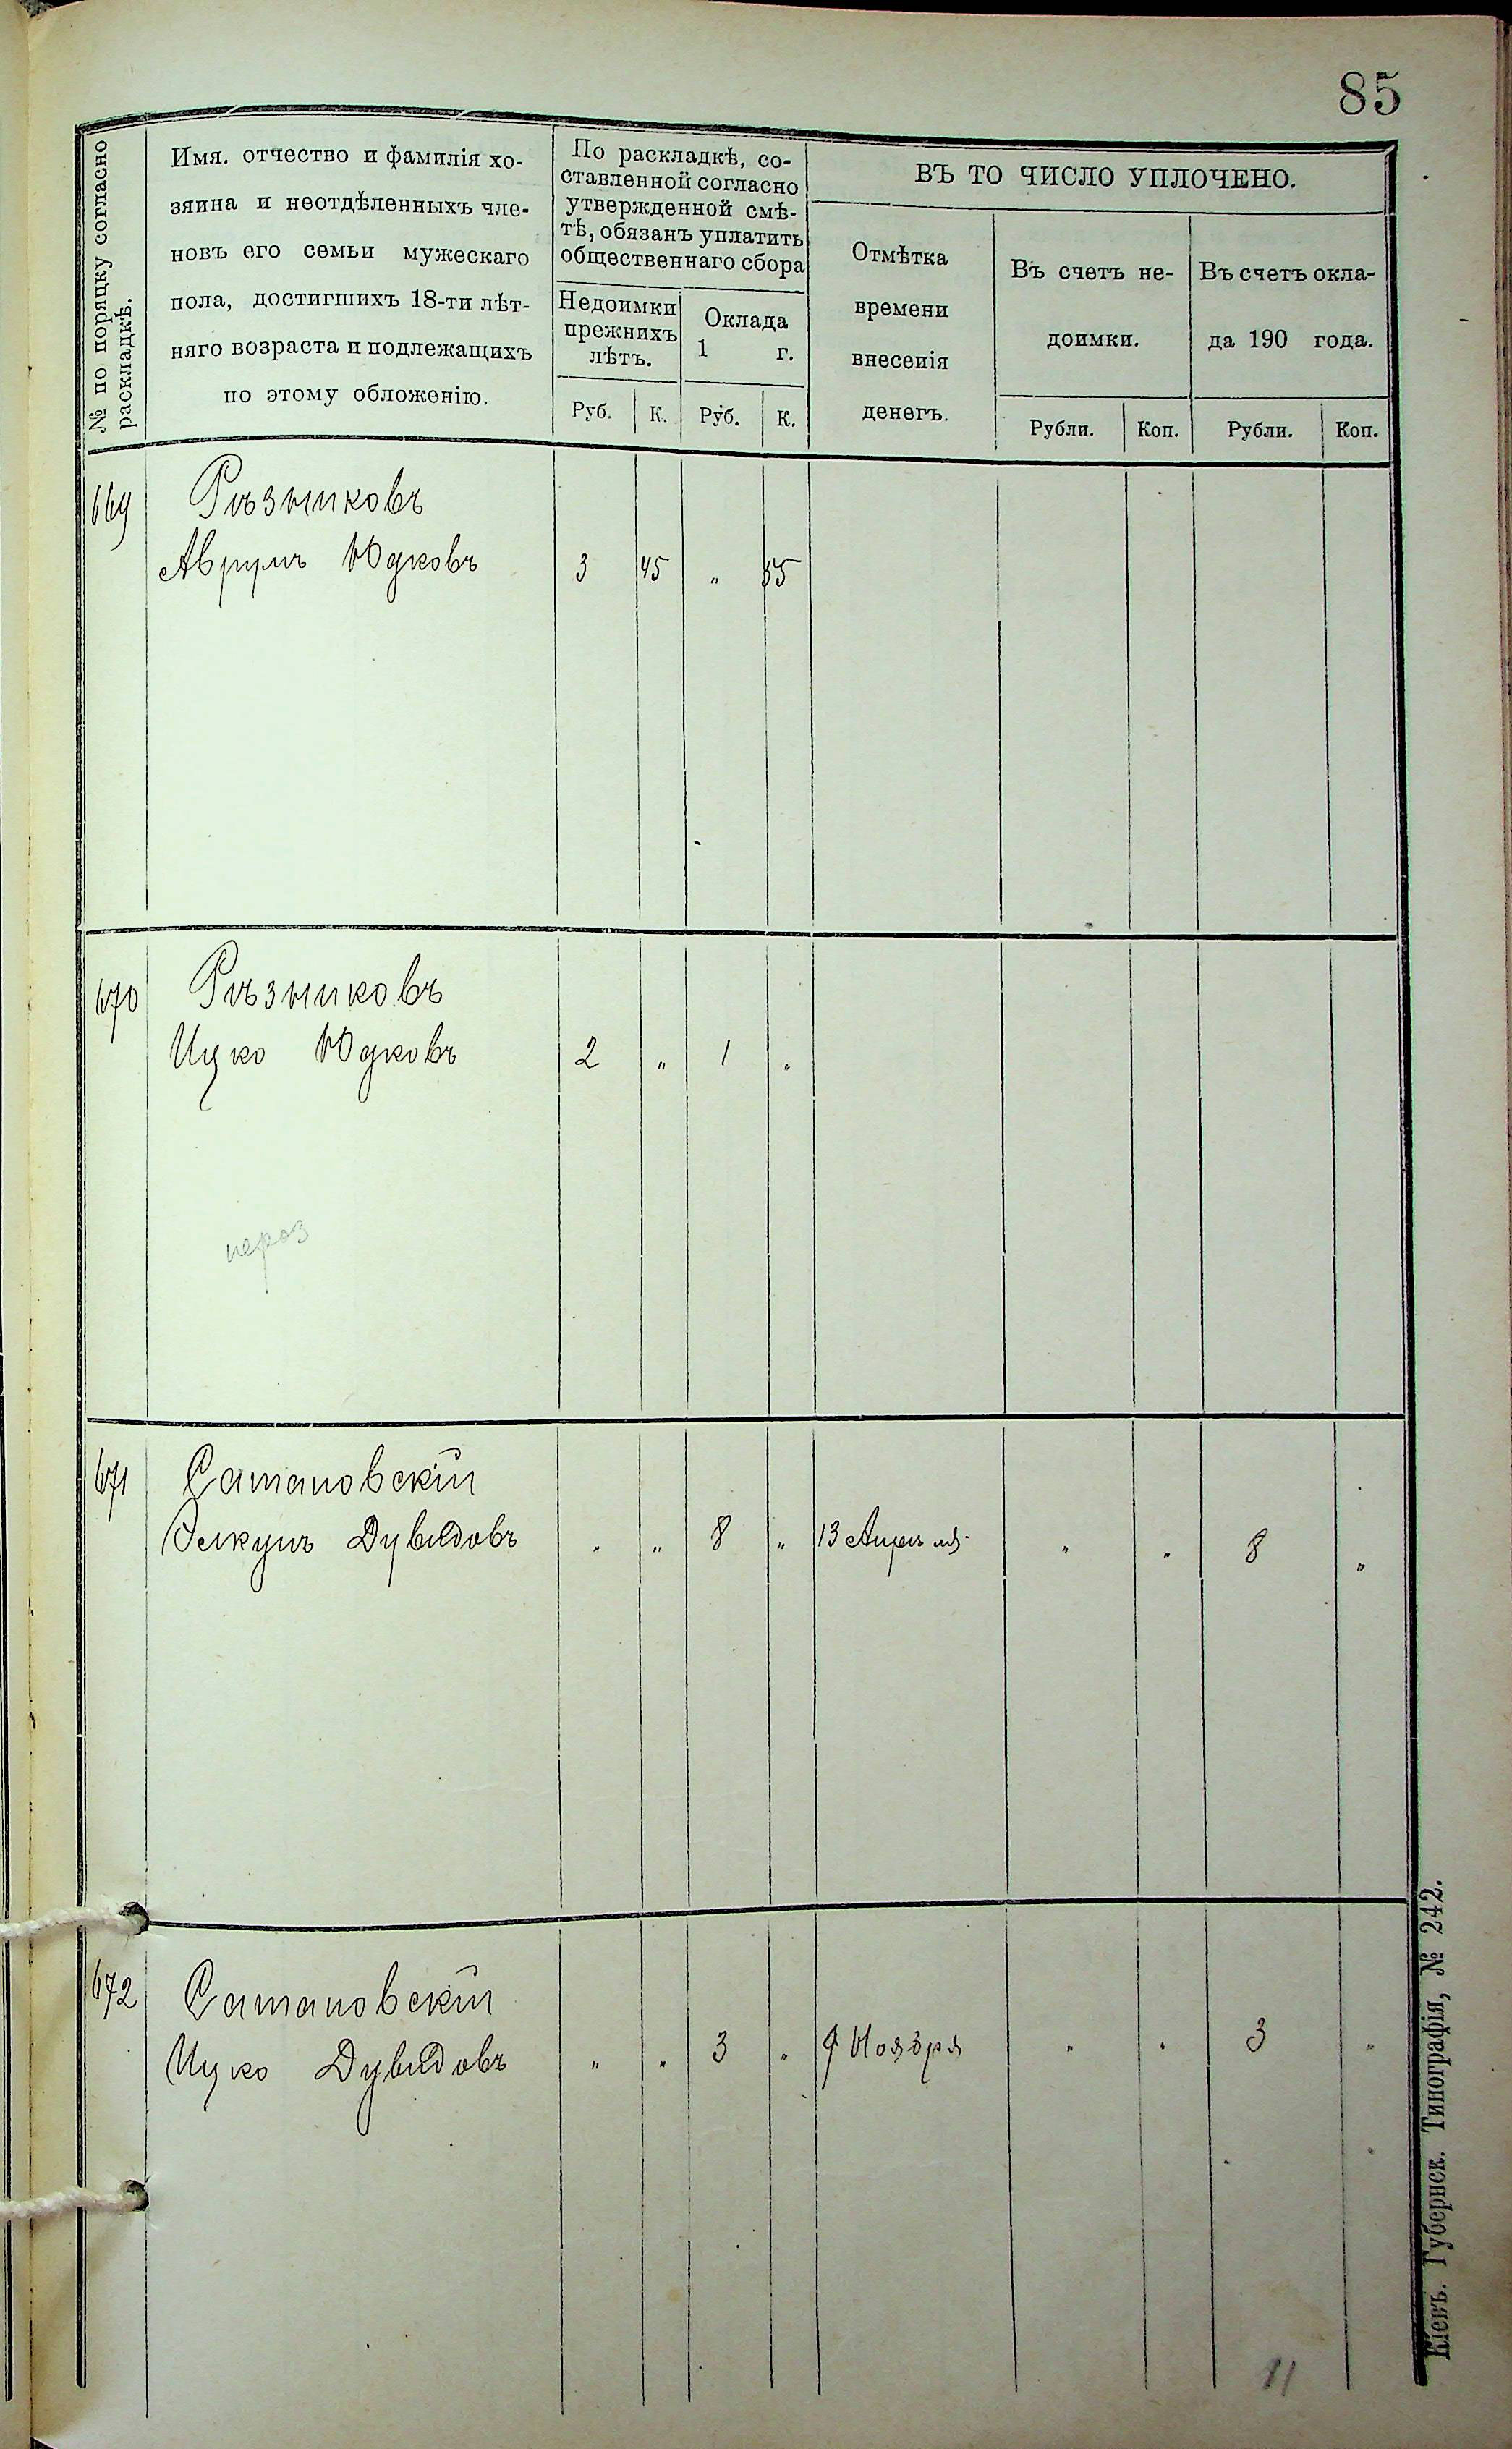 85
№ по порядку согласно
раскладкѣ.
Имя. отчество и фамилія хо-
зяина и неотдѣленныхъ чле-
новъ его семьи мужескаго
пола, достигшихъ 18-ти лѣт-
няго возраста и подлежащихъ
по этому обложенію.
По раскладкѣ, со-
ставленной согласно
утвержденной смѣ-
тѣ, обязанъ уплатить
общественнаго сбора
Недоимки
прежнихъ
лѣтъ.
Оклада
1 г.
Руб. К. Руб. К.
ВЪ ТО ЧИСЛО УПЛОЧЕНО.
Отмѣтка
времени
внесенія
денегъ.
Въ счетъ не-
доимки.
Въ счетъ окла-
да 190 года.
Рубли. Коп. Рубли. Коп.
669 Рѣзниковъ
Аврумъ Юдковъ 3 45 „ 55
670 Рѣзниковъ
Ицко Юдковъ 2 „ 1 „
671 Сатановскій
Дувидовъ „ „ 8 „ 13 Апрѣля „ „ 8 „
672 Сатановскій
Ицко Дувидовъ „ „ 3 „ Ноября „ „ 3 „
11
Кіевъ. Губернск. Типографія, № 242.